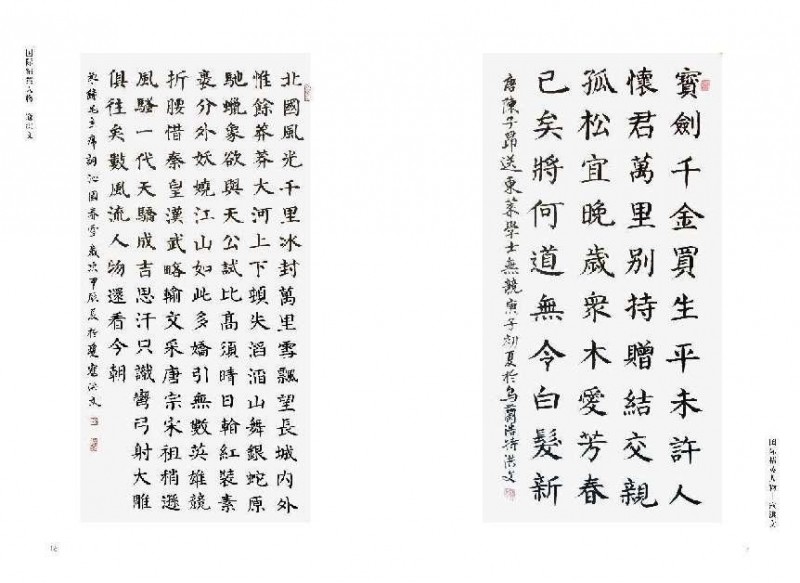 国际精英人物 寇洪文
北國風光千里冰封萬里雪飄望長城内外
惟餘莽莽大河上下頓失滔滔山舞銀蛇原
馳蠟象欲與天公試比高須晴日翰紅裝素
裹分外妖嬈江山如此多嬌引無數英雄競
折腰惜秦皇漢武略輸文采唐宗宋祖稍遜
風騷一代天驕成吉思汗只識彎弓射大雕
俱往矣數風流人物還看今朝
毛主席詞沁園春雪歲次甲辰夏於瓊寇洪文
寶劍千金買生平未許人
懷君萬里別持贈結交親
孤松宜晚歲衆木愛芳春
已矣將何道無令白髮新
唐陳子昂送東萊學士無競庚子初夏於烏蘭浩特洪文
国际精英人物—寇洪文